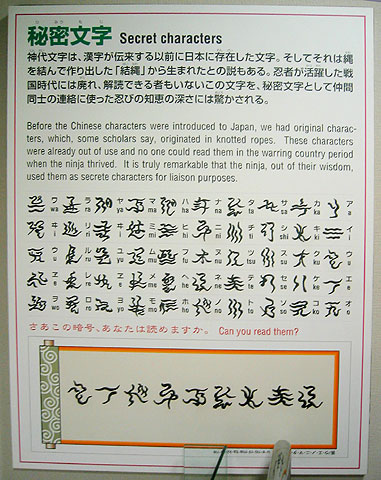 秘密文字 Secret characters
神代文字は、漢字が伝来する以前に日本に存在した文字。そしてそれは縄
を結んで作り出した「結縄」から生まれたとの説もある。忍者が活躍した戦
国時代には廃れ、解読できる者もいないこの文字を、秘密文字として仲間
同士の連絡に使った忍びの知恵の深さには驚かされる。
Before the Chinese characters were introduced to Japan, we had original charac-
ters, which, some scholars say, originated in knotted ropes. These characters
were already out of use and no one could read them in the warring country period
when the ninja thrived. It is truly remarkable that the ninja, out of their wisdom,
used them as secrete characters for liaison purposes.
ワ wa ラ ra ヤ ya マ ma ハ ha ナ na タ ta サ sa カ ka ア a
ヰ i リ ri ヰ i ミ mi ヒ hi ニ ni チ chi シ shi キ ki イ i
ウ u ル ru ユ yu ム mu フ ヌ nu ツ tsu ス su ク ku ウ u
ヱ e レ re ヱ e メ me ヘ he ネ ne テ te セ se ケ ke エ e
ヲ wo ロ ro ヨ yo モ mo ホ ho ノ no ト to ソ so コ ko オ o
さあこの暗号、あなたは読めますか。 Can you read them?